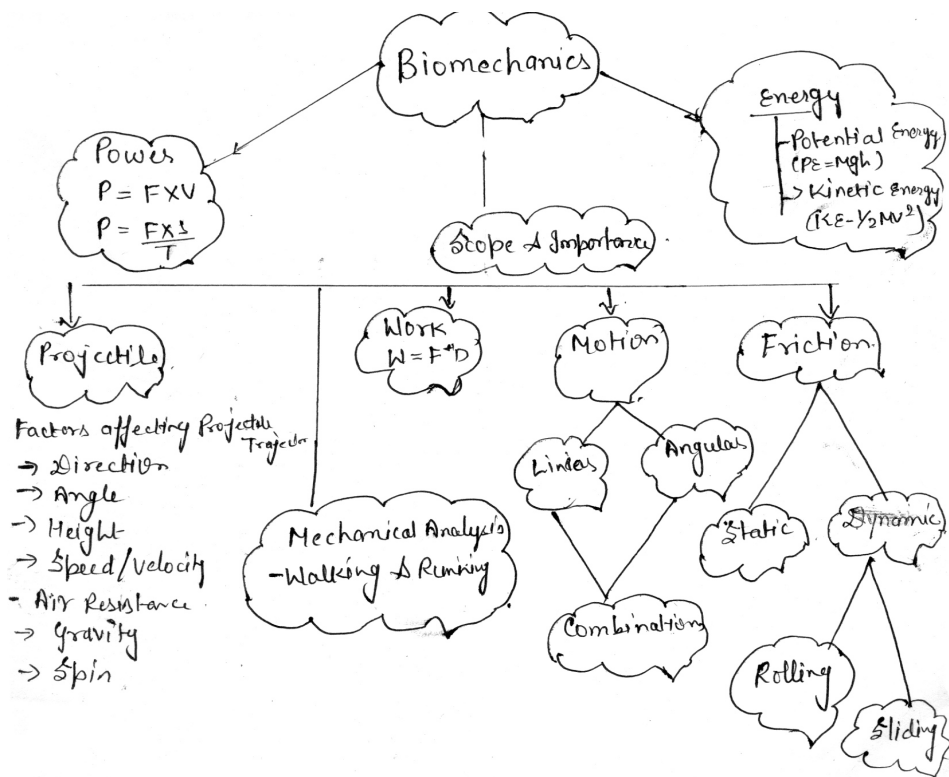 Biomechanics
Power
P = F×V
P = F×S
T
Energy
Potential Energy
(PE=Mgh)
→ Kinetic Energy
(KE-1/2MV²)
Scope & Importance
Projectile
Work
W = F*D
Motion
Friction
Factors affecting Projectile
Trajector
→ Direction
→ Angle
→ Height
→ Speed/Velocity
- Air Resistance
→ Gravity
→ Spin
Mechanical Analysis
-Walking & Running
Linear
Angular
Combination
Static
Dynamic
Rolling
Sliding